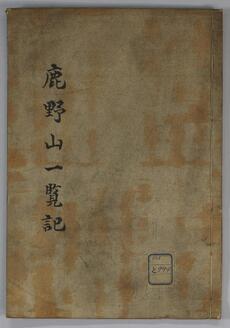 鹿野山一覧記